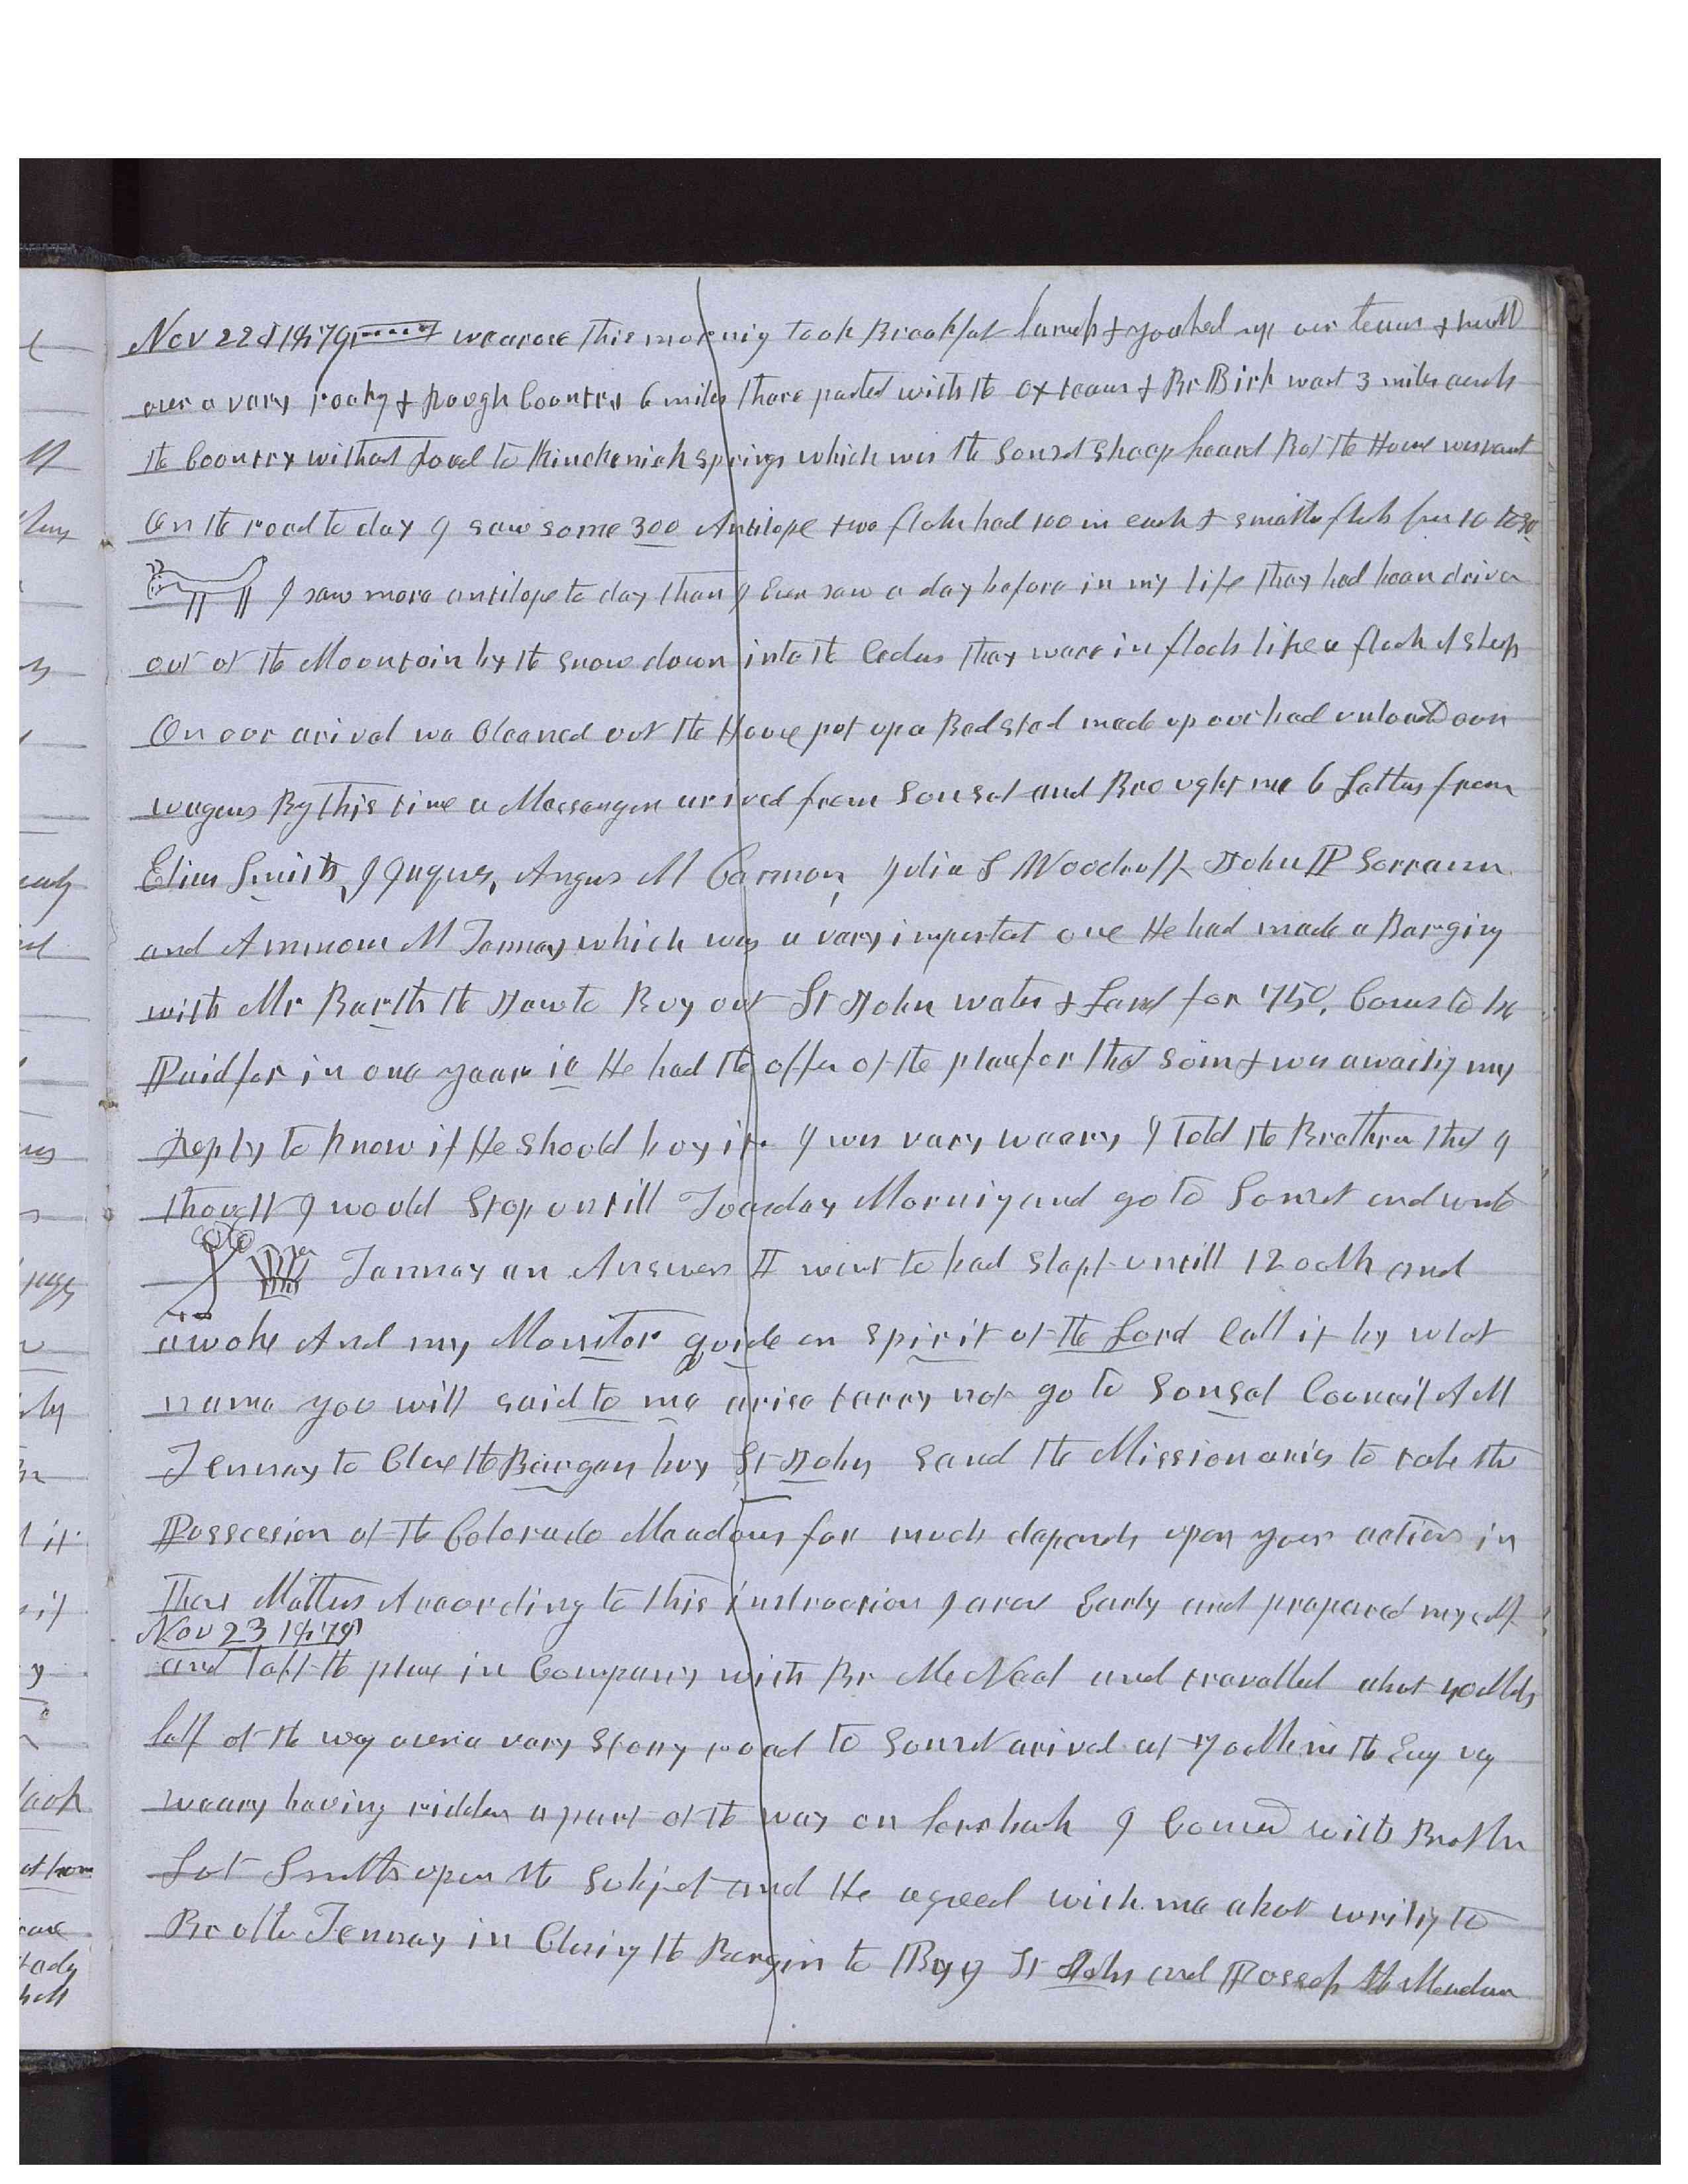 Nov 22d 1879 we arose this morning took Breakfast lunch & yoaked up our teams & trav
over a vary rocky & Rough Country 6 miles thare parted with the ox teams & Br Birk went 3 miles across
the Country without Road to springs which was the Sunset Sheep heard But the House was vacant
On the road to day I saw some 300 Antilope two flocks had 100 in each & smaller flocks from 10 to 30
I saw more antilope to day than I Ever saw a day before in my life thay had been driven
out of the Mountain by the snow down into the Ceders Thay ware in flocks like a flock of sheep
On our arival we Cleaned out the House put up a Bedsted made up our bed unload our
wagons By this time a Messanger arived from Sonset and Brought me 6 Letters from
Elias Smith, J Jaques, Angus M Cannon, Julia S Woodruff John P Sorranson
and Ammon M Tenney which was a vary important one He had made a Bargin
with Mr Barth the Jew to Buy out St John water & Land for 750, Cows to be
Paid for in one year ie He had the offer of the place for that soim & was awaiting my
Reply to know if He should buy it. I was vary weary I told the Brethren that I
thought I would Stop untill Tuesday Morning and go to Sonset and write
Tenney an Answer I went to bed slept untill 12 oclk and
awoke And my Monitor guide or spirit of the Lord Call it by what
name you will said to me arise tarry not go to Sonset Council A M
Tenney to Close the Bargan buy St John Send the Missionaries to take the
Possession of the Colorado Meadows for much depends upon your action in
these Matters According to this instruction I arose Early and prepared myself
Nov 23 1879
and left the place in Company with Br McNeal and travelled about miles
half of the way over a vary Stony road to Sonset arived at 7 oclk in the Eveng vey
weary having ridden a part of the way on horseback I Convered with Brother
Lot Smith upon the Subject and He agreed with me about writing to
Brother Tenney in Closing the Bargin to Buy St John and Possess the Meadows